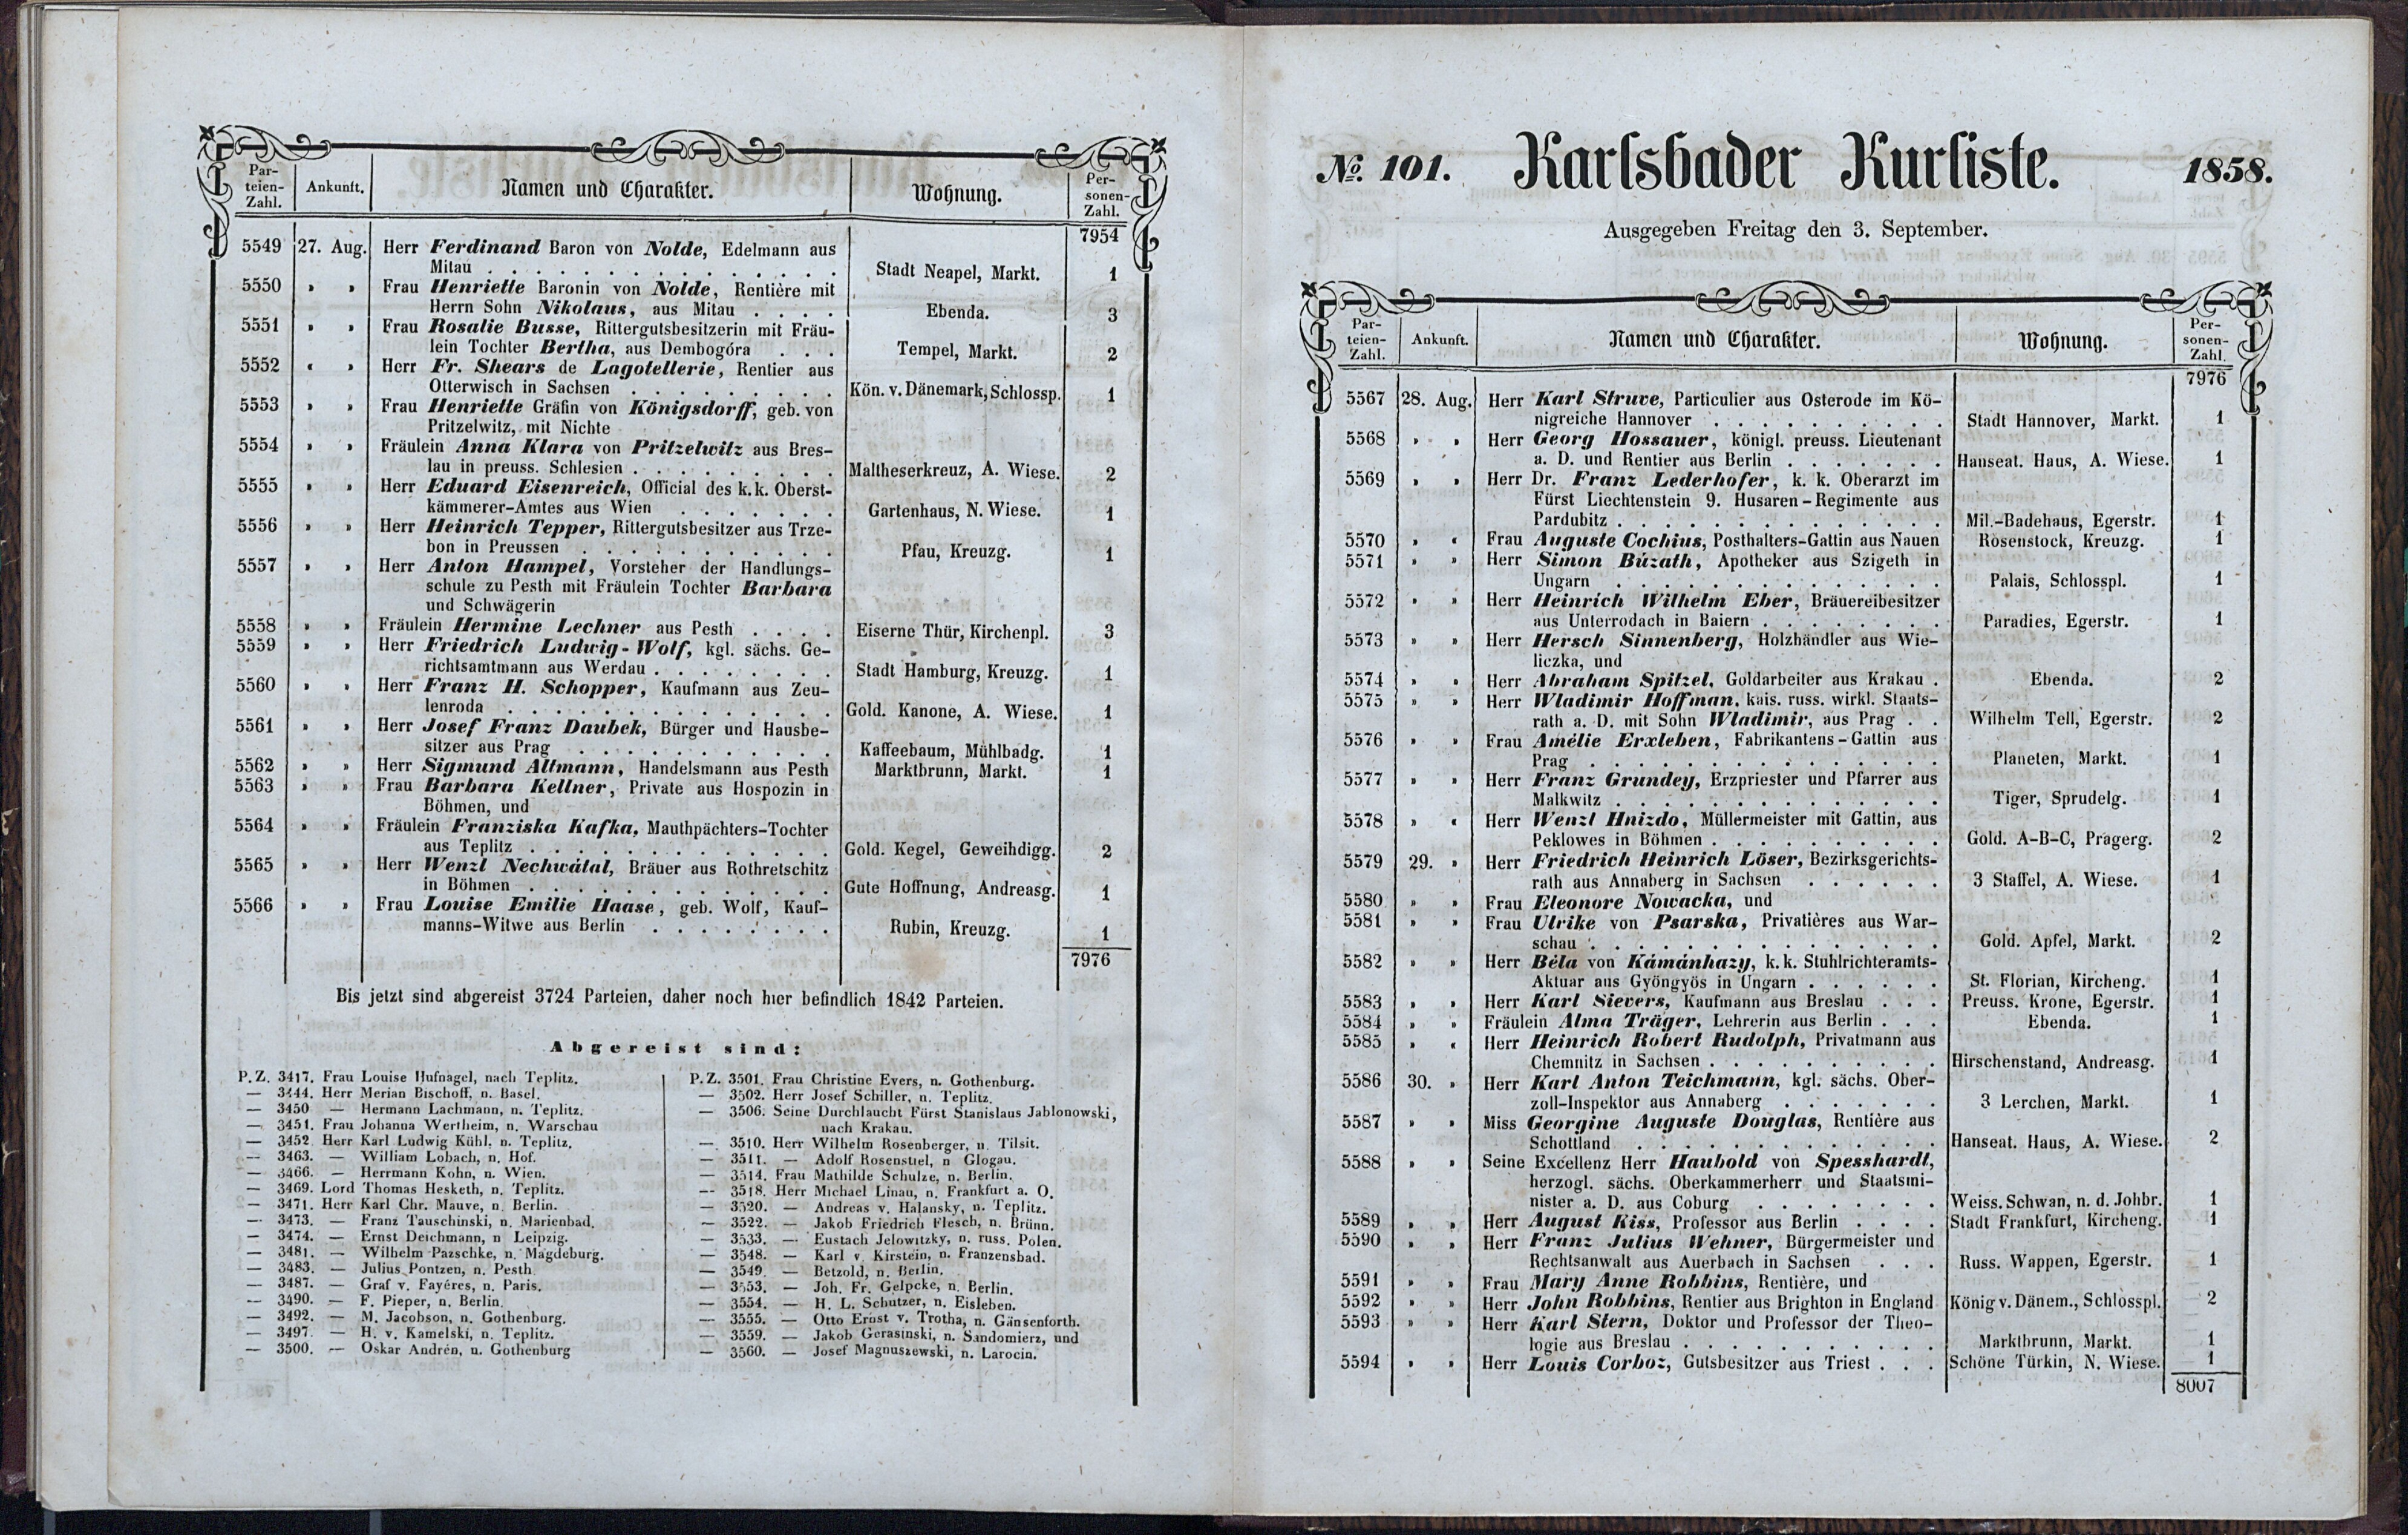 Par-
teien-
Zahl.
Ankunft.
Namen und Charakter.
Wohnung.
Per-
sonen-
Zahl.
7954
5549 27. Aug. Herr Ferdinand Baron von Nolde, Edelmann aus
Mitau . . . . . . . . . . . . . . . Stadt Neapel, Markt. 1
5550 » » Frau Henriette Baronin von Nolde, Rentière mit
Herrn Sohn Nikolaus, aus Mitau . . . . Ebenda. 3
5551 » » Frau Rosalie Busse, Rittergutsbesitzerin mit Fräu-
lein Tochter Bertha, aus Dembogóra . . . Tempel, Markt. 2
5552 « » Herr Fr. Shears de Lagotellerie, Rentier aus
Otterwisch in Sachsen . . . . . . . . . Kön. v. Dänemark, Schlossp. 1
5553 » » Frau Henriette Gräfin von Königsdorff, geb. von
Pritzelwitz, mit Nichte
5554 » » Fräulein Anna Klara von Pritzelwitz aus Bres-
lau in preuss. Schlesien . . . . . . . . . Maltheserkreuz, A. Wiese. 2
5555 » » Herr Eduard Eisenreich, Official des k. k. Oberst-
kämmerer-Amtes aus Wien . . . . . . . Gartenhaus, N. Wiese. 1
5556 » » Herr Heinrich Tepper, Rittergutsbesitzer aus Trze-
bon in Preussen . . . . . . . . . . . Pfau, Kreuzg. 1
5557 » » Herr Anton Hampel, Vorsteher der Handlungs-
schule zu Pesth mit Fräulein Tochter Barbara
und Schwägerin
5558 » » Fräulein Hermine Lechner aus Pesth . . . . Eiserne Thür, Kirchenpl. 3
5559 » » Herr Friedrich Ludwig-Wolf, kgl. sächs. Ge-
richtsamtmann aus Werdau . . . . . . . . Stadt Hamburg, Kreuzg. 1
5560 » » Herr Franz H. Schopper, Kaufmann aus Zeu-
lenroda . . . . . . . . . . . . . . Gold. Kanone, A. Wiese. 1
5561 » » Herr Josef Franz Daubek, Bürger und Hausbe-
sitzer aus Prag . . . . . . . . . . . Kaffeebaum, Mühlbadg. 1
5562 » » Herr Sigmund Altmann, Handelsmann aus Pesth Marktbrunn, Markt. 1
5563 » » Frau Barbara Kellner, Private aus Hospozin in
Böhmen, und
5564 » » Fräulein Franziska Kafka, Mauthpächters-Tochter
aus Teplitz . . . . . . . . . . . . . Gold. Kegel, Geweihdigg. 2
5565 » » Herr Wenzl Nechwátal, Bräuer aus Rothretschitz
in Böhmen . . . . . . . . . . . . . Gute Hoffnung, Andreasg. 1
5566 » » Frau Louise Emilie Haase, geb. Wolf, Kauf-
manns-Witwe aus Berlin . . . . . . . . Rubin, Kreuzg. 1
7976
Bis jetzt sind abgereist 3724 Parteien, daher noch hier befindlich 1842 Parteien.
Abgereist sind:
P. Z. 3417. Frau Louise Hufnagel, nach Teplitz.
— 3444. Herr Merian Bischoff, n. Basel.
— 3450 — Hermann Lachmann, n. Teplitz.
— 3451. Frau Johanna Wertheim, n. Warschau
— 3452 Herr Karl Ludwig Kühl, n. Teplitz.
— 3463. — William Lobach, n. Hof.
— 3466. — Herrmann Kohn, n. Wien.
— 3469. Lord Thomas Hesketh, n. Teplitz.
— 3471. Herr Karl Chr. Mauve, n. Berlin.
— 3473. — Franz Tauschinski, n. Marienbad.
— 3474. — Ernst Deichmann, n Leipzig.
— 3481. — Wilhelm Pazschke, n. Magdeburg.
— 3483. — Julius Pontzen, n. Pesth
— 3487. — Graf v. Fayéres, n. Paris.
— 3490. — F. Pieper, n. Berlin.
— 3492. — M. Jacobson, n. Gothenburg.
— 3497. — H. v. Kamelski, n. Teplitz.
— 3500. — Oskar Andrén, n. Gothenburg
P. Z. 3501. Frau Christine Evers, n. Gothenburg.
— 3502. Herr Josef Schiller, n. Teplitz.
— 3506. Seine Durchlaucht Fürst Stanislaus Jablonowski,
nach Krakau.
— 3510. Herr Wilhelm Rosenberger, n. Tilsit.
— 3511. — Adolf Rosenstiel, n Glogau.
— 3514. Frau Mathilde Schulze, n. Berlin.
— 3518. Herr Michael Linau, n. Frankfurt a. O.
— 3520. — Andreas v. Halansky, n. Teplitz.
— 3522. — Jakob Friedrich Flesch, n. Brünn.
— 3533. — Eustach Jelowitzky, n. russ. Polen.
— 3548. — Karl v. Kirstein, n. Franzensbad.
— 3549. — Betzold, n. Berlin.
— 3553. — Joh. Fr. Gelpcke, n. Berlin.
— 3554. — H. L. Schutzer, n. Eisleben.
— 3555. — Otto Ernst v. Trotha, n. Gänsenforth.
— 3559. — Jakob Gerasinski, n. Sandomierz, und
— 3560. — Josef Magnuszewski, n. Larocin.
No. 101. Karlsbader Kurliste. 1858.
Ausgegeben Freitag den 3. September.
Par-
teien-
Zahl.
Ankunft.
Namen und Charakter.
Wohnung.
Per-
sonen-
Zahl.
7976
5567 28. Aug. Herr Karl Struve, Particulier aus Osterode im Kö-
nigreiche Hannover . . . . . . . . . . Stadt Hannover, Markt. 1
5568 » » Herr Georg Hossauer, königl. preuss. Lieutenant
a. D. und Rentier aus Berlin . . . . . . . Hanseat. Haus, A. Wiese. 1
5569 » » Herr Dr. Franz Lederhofer, k. k. Oberarzt im
Fürst Liechtenstein 9. Husaren-Regimente aus
Pardubitz . . . . . . . . . . . . . . Mil.-Badehaus, Egerstr. 1
5570 » « Frau Auguste Cochius, Posthalters-Gattin aus Nauen Rosenstock, Kreuzg. 1
5571 » » Herr Simon Búzath, Apotheker aus Szigeth in
Ungarn . . . . . . . . . . . . . . Palais, Schlosspl. 1
5572 » » Herr Heinrich Wilhelm Eber, Bräuereibesitzer
aus Unterrodach in Baiern . . . . . . . . Paradies, Egerstr. 1
5573 » » Herr Hersch Sinnenberg, Holzhändler aus Wie-
liczka, und
5574 » » Herr Abraham Spitzel, Goldarbeiter aus Krakau . Ebenda. 2
5575 » » Herr Wladimir Hoffman, kais. russ. wirkl. Staats-
rath a. D. mit Sohn Wladimir, aus Prag . . Wilhelm Tell, Egerstr. 2
5576 » » Frau Amélie Erxleben, Fabrikantens-Gattin aus
Prag . . . . . . . . . . . . . . . Planeten, Markt. 1
5577 » » Herr Franz Grundey, Erzpriester und Pfarrer aus
Malkwitz . . . . . . . . . . . . . . Tiger, Sprudelg. 1
5578 » « Herr Wenzl Hnizdo, Müllermeister mit Gattin, aus
Peklowes in Böhmen . . . . . . . . . . Gold. A-B-C, Pragerg. 2
5579 29. » Herr Friedrich Heinrich Löser, Bezirksgerichts-
rath aus Annaberg in Sachsen . . . . . . 3 Staffel, A. Wiese. 1
5580 » » Frau Eleonore Nowacka, und
5581 » » Frau Ulrike von Psarska, Privatières aus War-
schau . . . . . . . . . . . . . . . Gold. Apfel, Markt. 2
5582 » » Herr Béla von Kámánhazy, k. k. Stuhlrichteramts-
Aktuar aus Gyöngyös in Ungarn . . . . . . St. Florian, Kircheng. 1
5583 » » Herr Karl Sievers, Kaufmann aus Breslau . . . Preuss. Krone, Egerstr. 1
5584 » » Fräulein Alma Träger, Lehrerin aus Berlin . . . Ebenda. 1
5585 » « Herr Heinrich Robert Rudolph, Privatmann aus
Chemnitz in Sachsen . . . . . . . . . . Hirschenstand, Andreasg. 1
5586 30. » Herr Karl Anton Teichmann, kgl. sächs. Ober-
zoll-Inspektor aus Annaberg . . . . . . . 3 Lerchen, Markt. 1
5587 » » Miss Georgine Auguste Douglas, Rentière aus
Schottland . . . . . . . . . . . . . Hanseat. Haus, A. Wiese. 2
5588 » » Seine Excellenz Herr Haubold von Spesshardt,
herzogl. sächs. Oberkammerherr und Staatsmi-
nister a. D. aus Coburg . . . . . . . . Weiss. Schwan, n. d. Johbr. 1
5589 » » Herr August Kiss, Professor aus Berlin . . . . Stadt Frankfurt, Kircheng. 1
5590 » » Herr Franz Julius Wehner, Bürgermeister und
Rechtsanwalt aus Auerbach in Sachsen . . . Russ. Wappen, Egerstr. 1
5591 » » Frau Mary Anne Robbins, Rentière, und
5592 » » Herr John Robbins, Rentier aus Brighton in England König v. Dänem., Schlosspl. 2
5593 » » Herr Karl Stern, Doktor und Professor der Theo-
logie aus Breslau . . . . . . . . . . . Marktbrunn, Markt. 1
5594 » » Herr Louis Corboz, Gutsbesitzer aus Triest . . . Schöne Türkin, N. Wiese. 1
8007